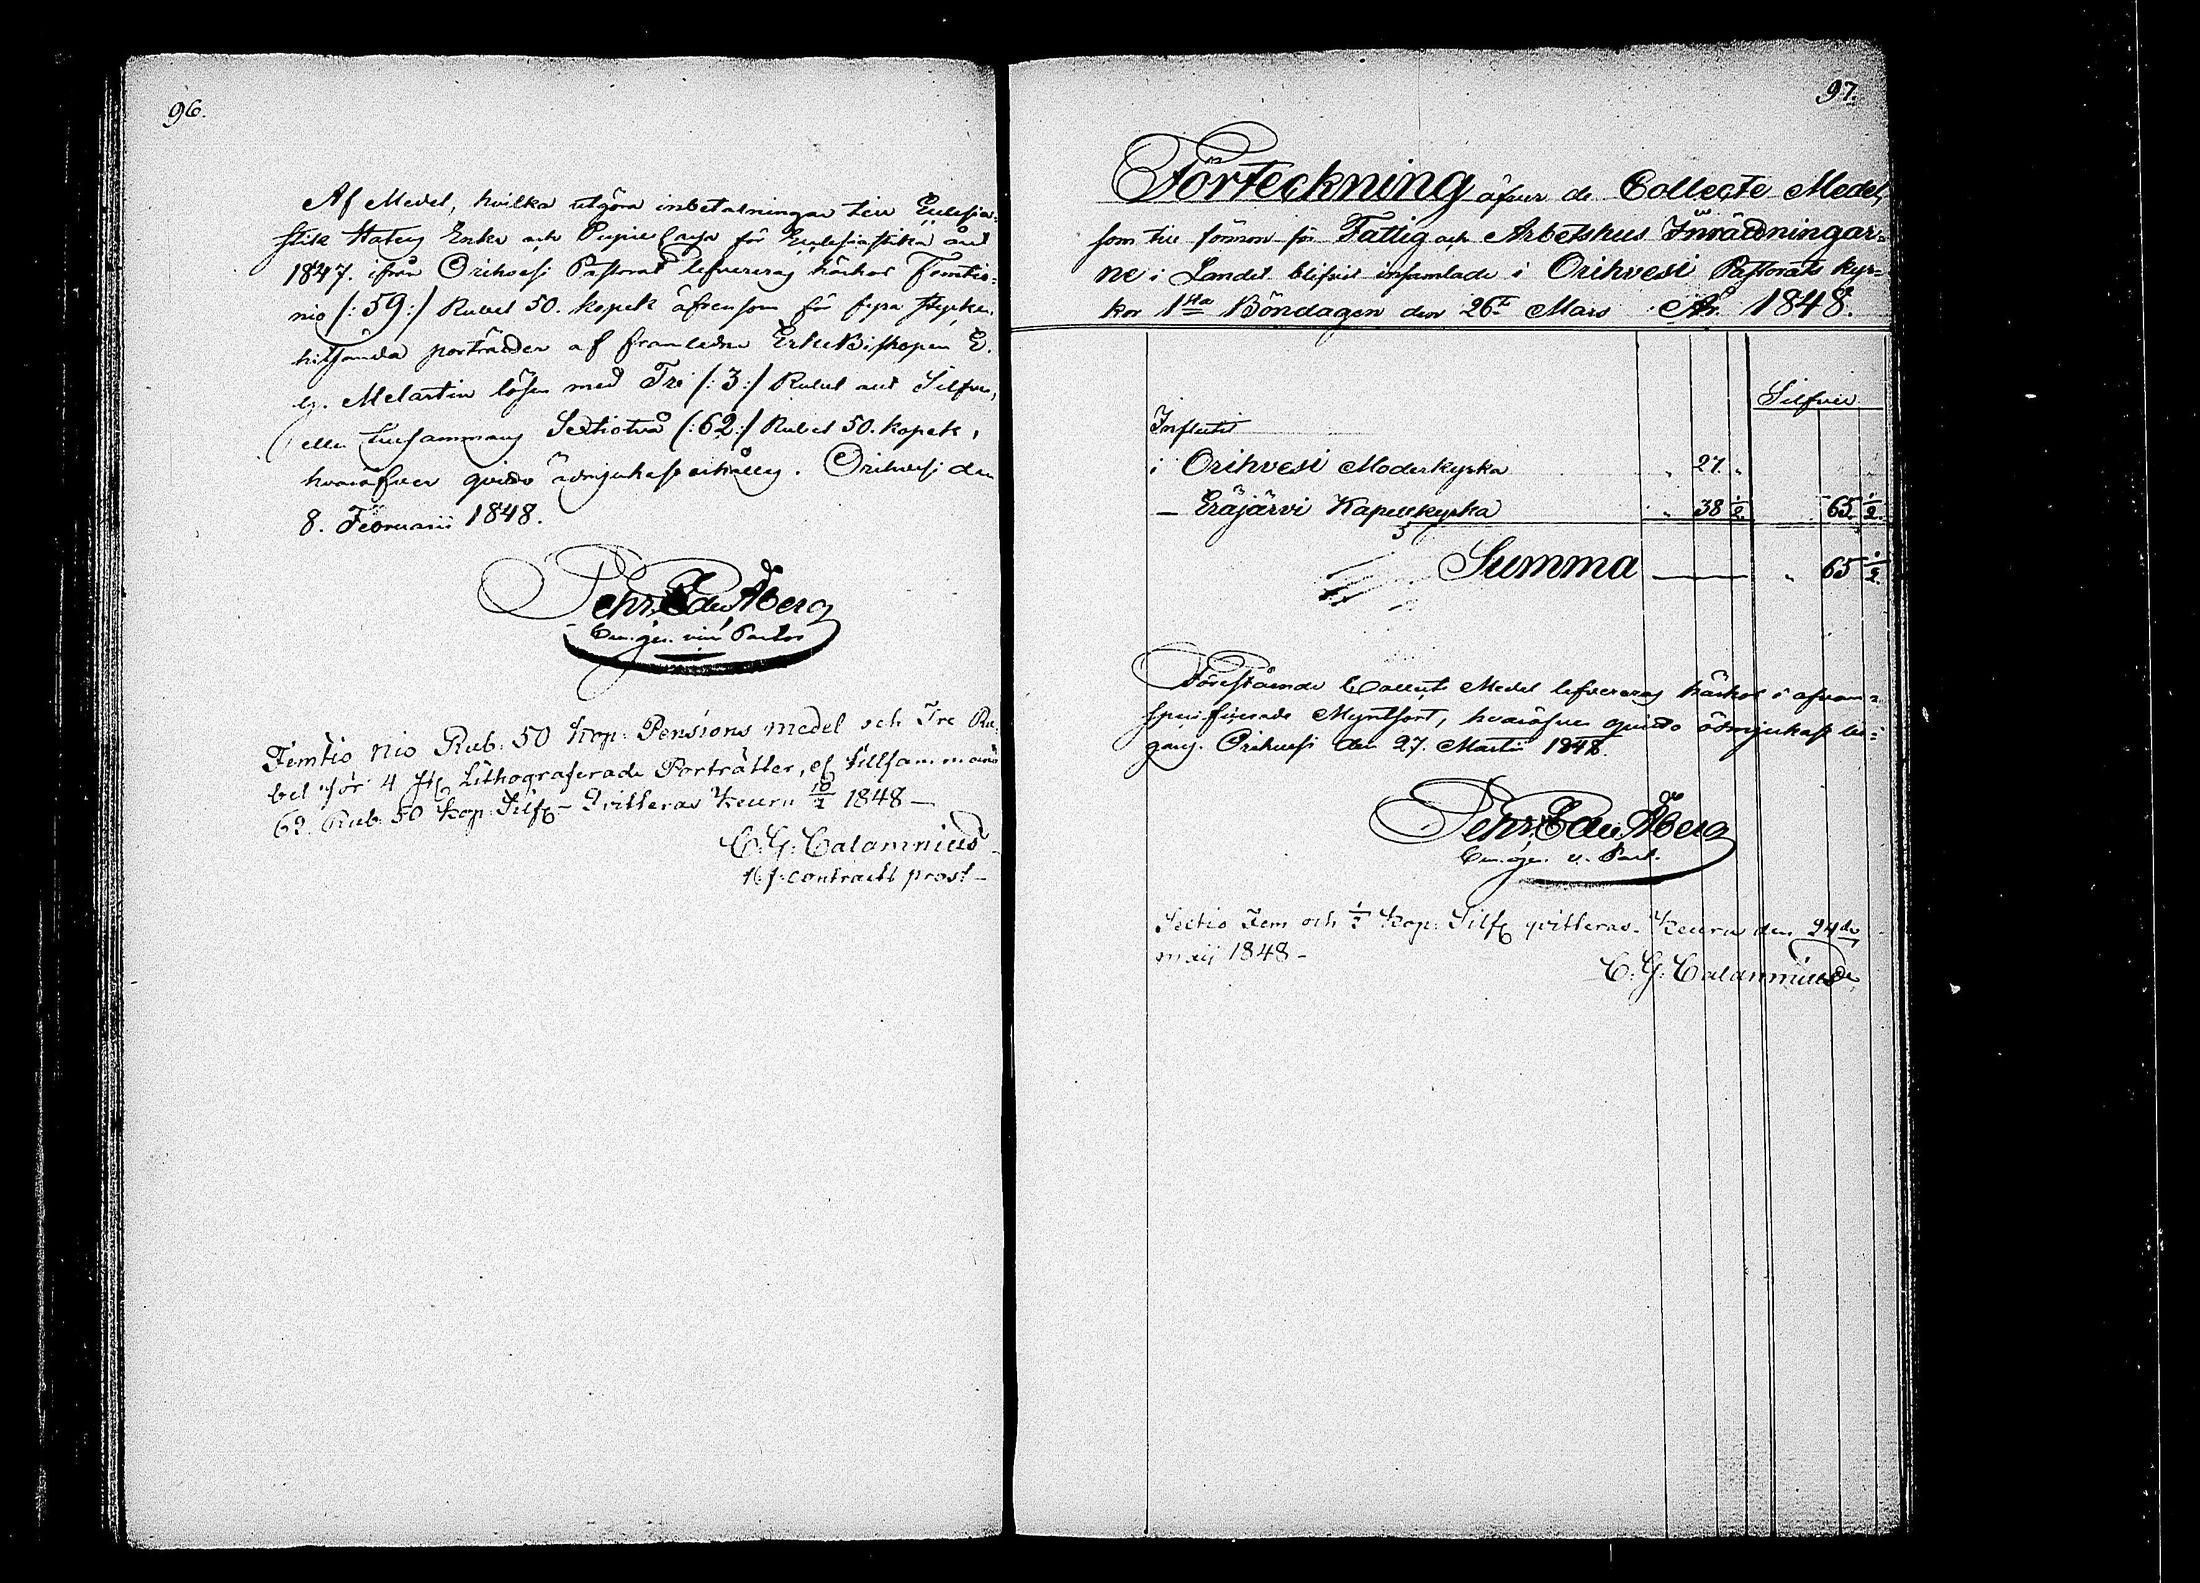 96.
Af Medel, hvilka utgöra inbetalningar till Ecclesia-
stik Staten Enke och Pupill Cassa för Ecclesiastika året
1847. ifrån Orihvesi Pastorat lefvereras härhos Femtio-
nio /: 59 :/ Rubel 50. kopek äfvensom för fyra stycken
hitsända porträtter af framledne ErkeBiskopen E.
G. Melartin lösen med Tre /: 3 :/ Rubel allt Silfver,
eller tillsammans Sextiotvå /: 62 :/ Rubel 50. kopek,
hvaröfver qvitto ödmjukast erhålles. Orihvesi den
8. Februarii 1848.
Pehr Edv. Åberg
Femtio nio Rub. 50 kop: Pensions medel och Tre Ru-
bel för 4 st. Lithograferade Porträtter, el. tillsammans
62. Rub. 50 kop: Silfr - Qvitteras Keuru 10/2 1848 -
C. G. Calamnius
contracts prost -
97.
Förteckning öfver de Collecte Medel,
som till förmon för Fattig och Arbetshus Inrättningar-
ne i Landet blifvit insamlade i Orihvesi Pastorats Kyr-
kor 1sta Böndagen den 26te Mars År 1848.
Silfver.
Influtit
i Orihvesi Moderkyrka " 27 "
- Eräjärvi Kapellkyrka " 38 1/2. 65. 1/2.
Summa — " 65 1/2.
Förestående Collect Medel lefvereras härhos i ofvan-
specificerade Myntsort, hvaröfver qvitto ödmjukast be-
gäres. Orihvesi den 27. Martii 1848.
Pehr Edv. Åberg
Sextio Fem och 1/2 kop: Silfr qvitteras. Keuru den 24de
maij 1848 -
C. G. Calamnius